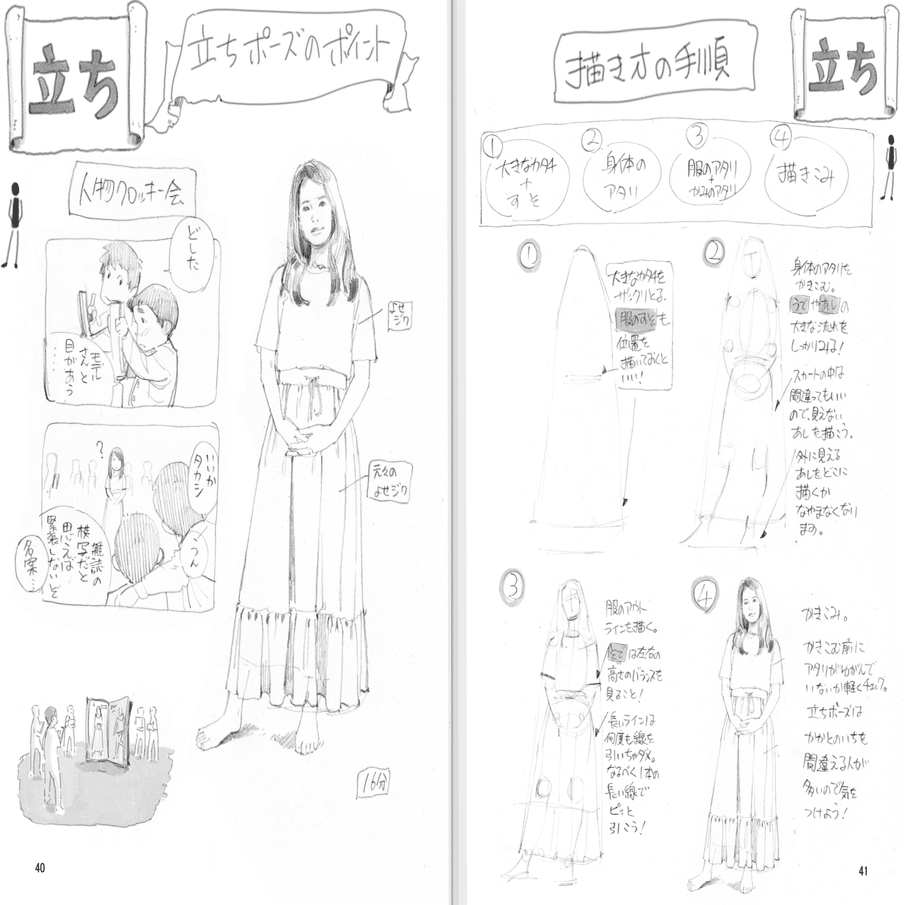 立ち
立ちポーズのポイント
人物クロッキー会
どした
モデル
さんと
目があう
……
?
いいか
タカシ
うん
雑誌の
模写だと
思えば
緊張しないぞ
名案…
よせ
ジワ
元々の
よせジワ
16分
40
描き方の手順
立ち
①
大きなカタチ
+
すそ
②
身体の
アタリ
③
服のアタリ
+
かみのアタリ
④
描きこみ
①
大きなカタチを
ザックリとる。
服のすそも
位置を
描いておくと
いい!
②
身体のアタリを
かきこむ。
うでやあしの
大きな流れを
しっかりみる!
スカートの中は
間違ってもいい
ので、見えない
あしを描こう。
外に見える
あしをどこに
描くか
なやまなくなり
ます。
③
服のアウト
ラインを描く。
そでは左右の
高さのバランスを
見ること!
長いラインは
何度も線を
引いちゃダメ。
なるべく1本の
長い線で
ピッと
引こう!
④
かきこみ。
かきこむ前に
アタリがゆがんで
いないか軽くチェック。
立ちポーズは
かかとのいちを
間違える人が
多いので気を
つけよう!
41